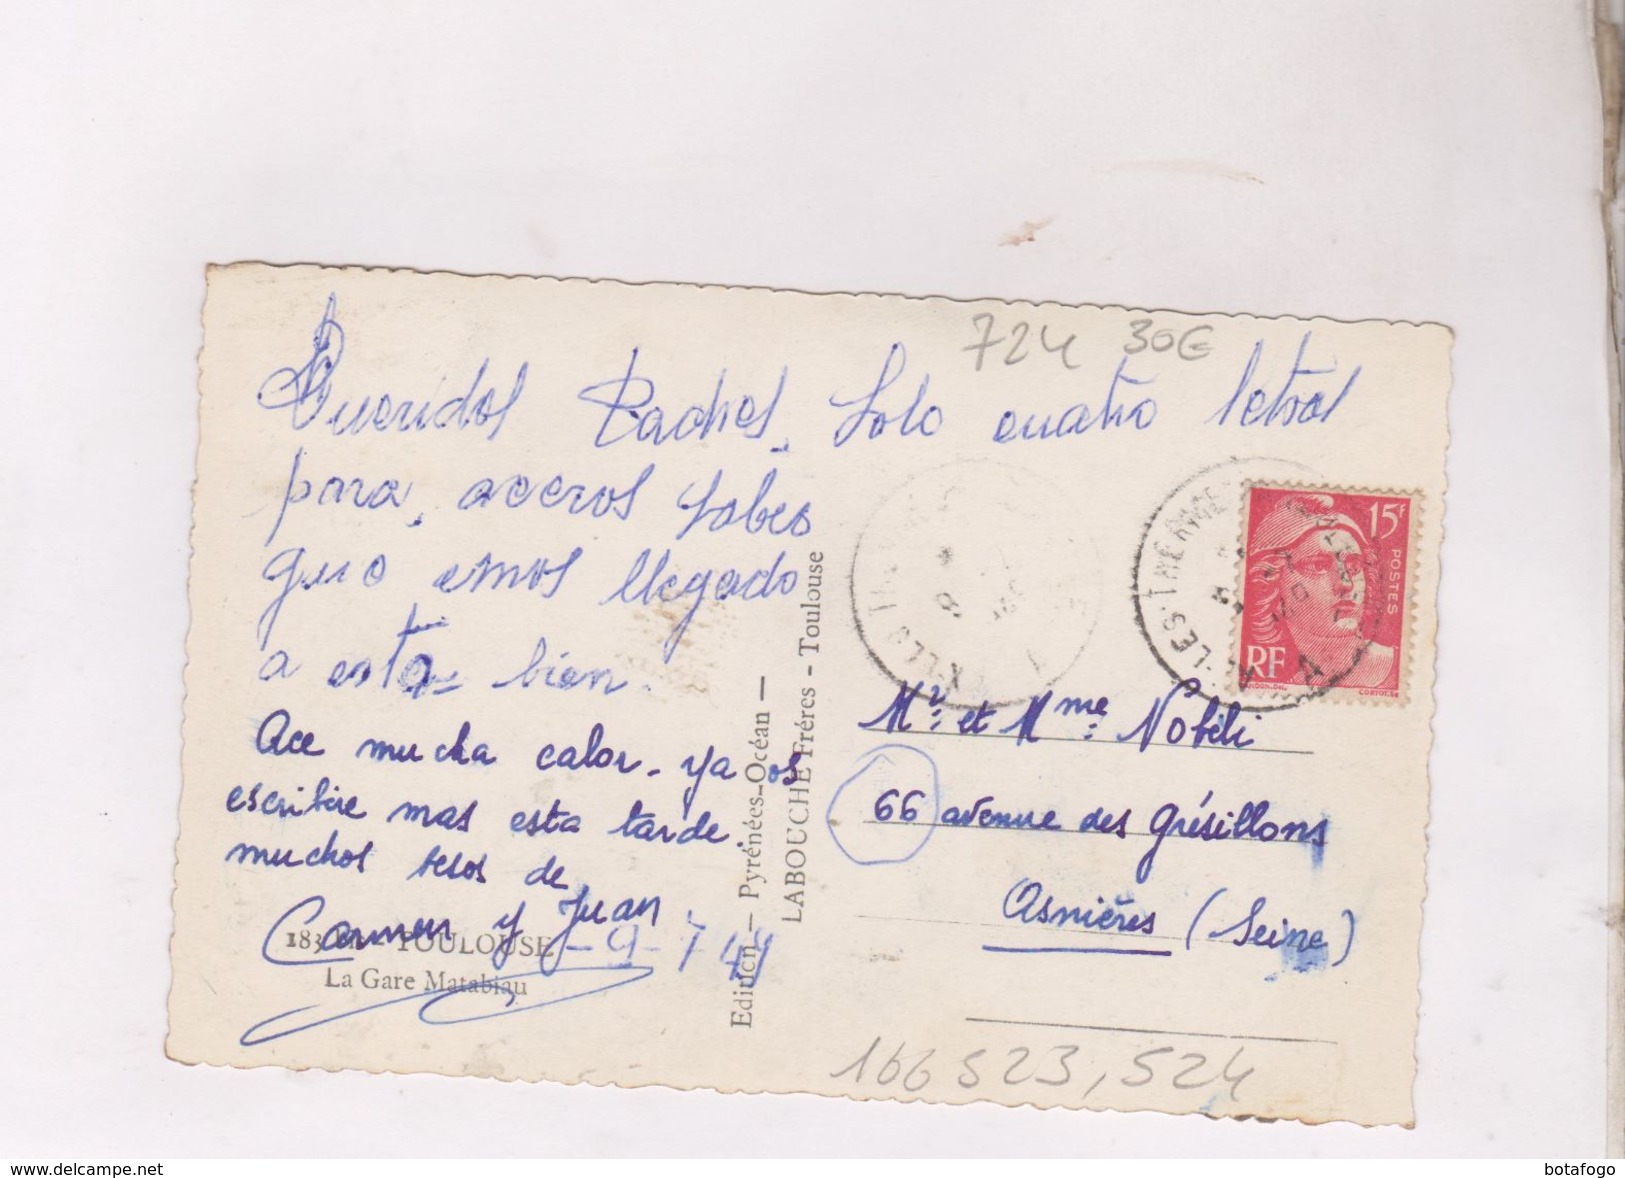 724 30€
Queridos Padres. Solo cuatro letras
para, aceros sabeo
que emos llegado
a esta bien.
Ace mucha calor - ya os
escribire mas esta tarde.
muchos besos de
Carmen y Juan.
- 9 - 7 49
183 TOULOUSE
La Gare Matabiau
Edition — Pyrénées-Océan —
LABOUCHE Frères - Toulouse
15F
POSTES
RF
LES-THERMES
Mr. et Mme. Nobili
66 avenue des Grésillons
Asnières (Seine)
166 523, 524
www.delcampe.net
botafogo